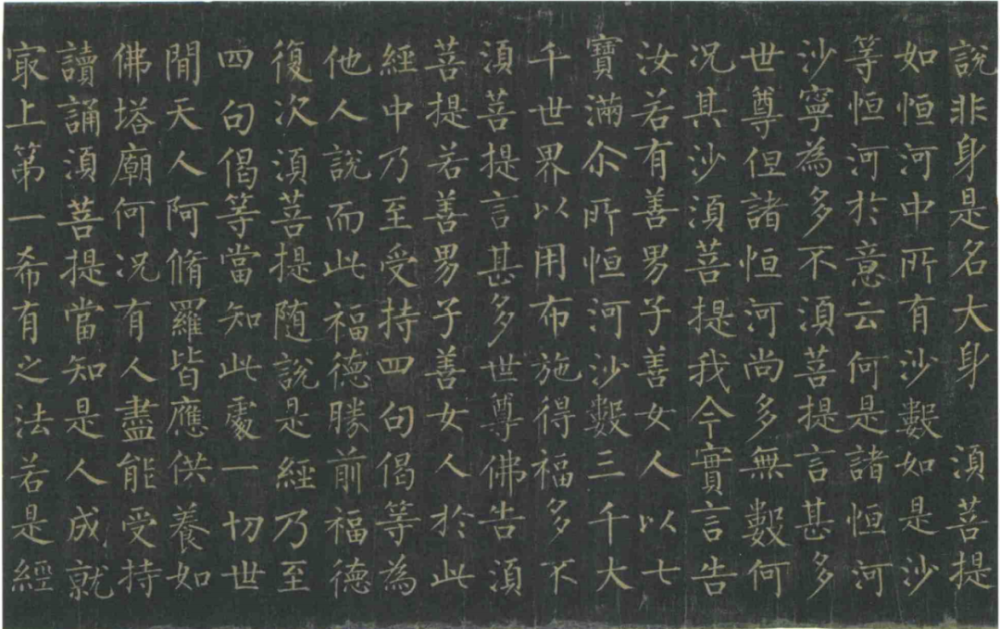 說非身是名大身　須菩提
如恒河中所有沙數如是沙
等恒河於意云何是諸恒河
沙寧為多不須菩提言甚多
世尊但諸恒河尚多無數何
況其沙須菩提我今實言告
汝若有善男子善女人以七
寶滿尒所恒河沙數三千大
千世界以用布施得福多不
須菩提言甚多世尊佛告須
菩提若善男子善女人於此
經中乃至受持四句偈等為
他人說而此福德勝前福德
復次須菩提随說是經乃至
四句偈等當知此處一切世
間天人阿脩羅皆應供養如
佛塔廟何況有人盡能受持
讀誦須菩提當知是人成就
㝡上第一希有之法若是經